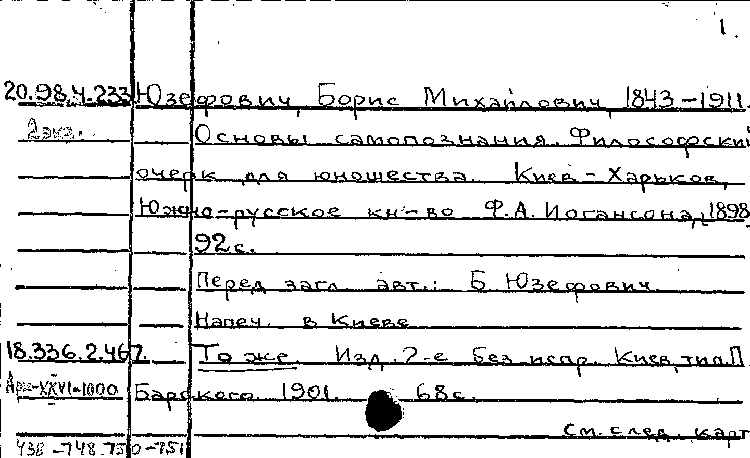 1.
20.98.4.233 Юзефович, Борис Михайлович, 1843-1911.
2 экз. Основы самопознания. Философский
очерк для юношества. Киев-Харьков,
Южно-русское кн-во Ф.А. Иогансона, 1898
92 с.
Перед загл. авт.: Б. Юзефович.
Напеч. в Киеве
18.336.2.467. То же. Изд. 2-е без испр. Киев, тип. П
Барского. 1901. 68 с.
См. след. карт